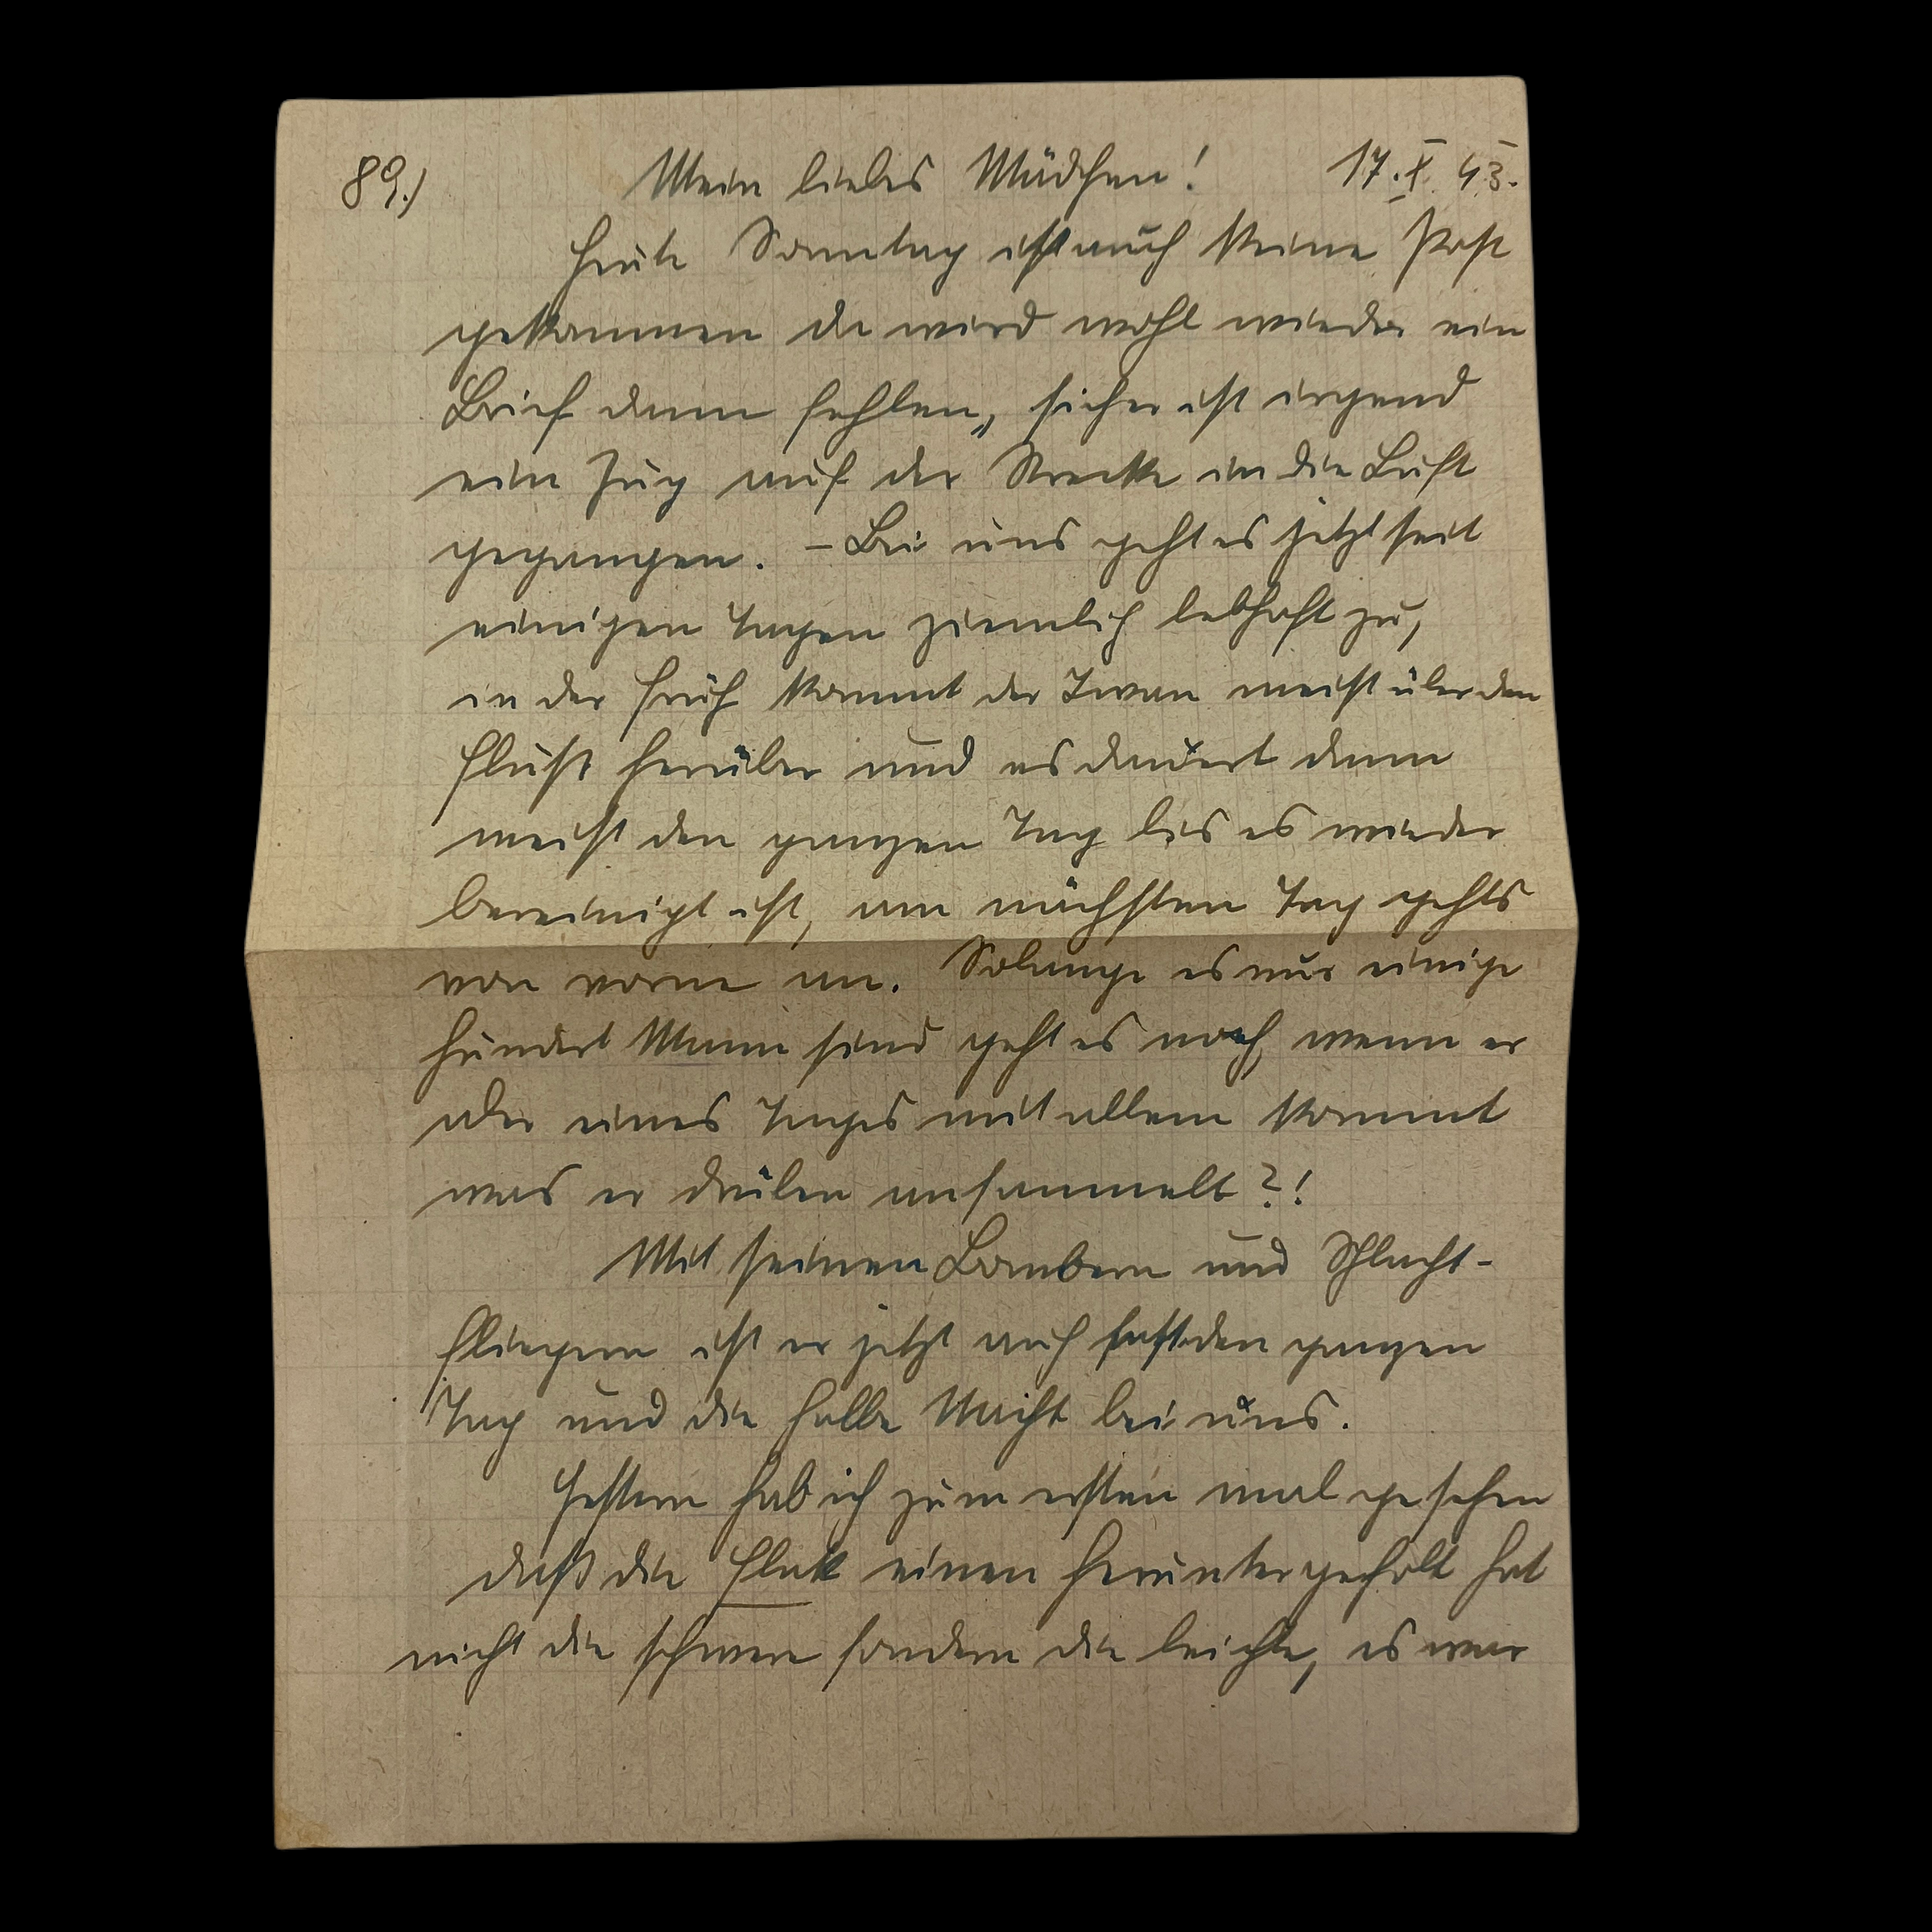 89.) Mein liebes Mädchen! 17.X.43.
Heute Sonntag ist auch keine Post
gekommen da wird wohl wieder ein
Brief dann fehlen, sicher ist irgend
ein Zug auf der Strecke in die Luft
gegangen. – Bei uns geht es jetzt seit
einigen Tagen ziemlich lebhaft zu,
in der früh kommt der Iwan meist über den
Fluß herüber und es dauert dann
meist den ganzen Tag bis es wieder
bereinigt ist, am nächsten Tag gehts
von vorne an. Solange es nur einige
hundert Mann sind geht es noch, wenn er
aber eines Tages mit allem kommt
was er drüben ansammelt?!
Mit seinen Bombern und Schlacht-
fliegern ist er jetzt auch fast den ganzen
Tag und die halbe Nacht bei uns.
Gestern hab ich zum ersten mal gesehen
daß die Flak einen heruntergeholt hat
nicht die schwere sondern die leichte, es war